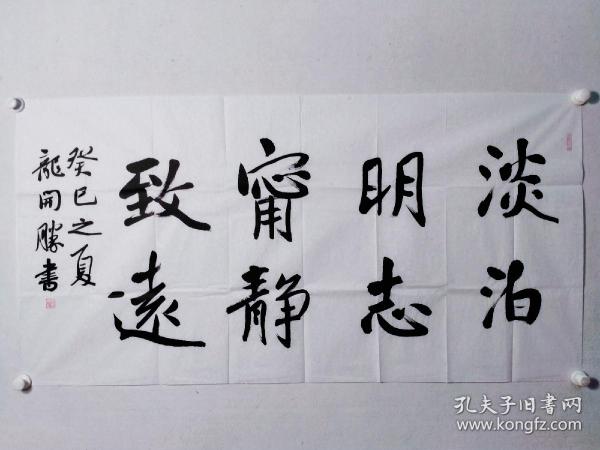 淡泊
明志
甯静
致遠
癸巳之夏
龍開勝書
孔夫子旧書网
www.kongfz.com